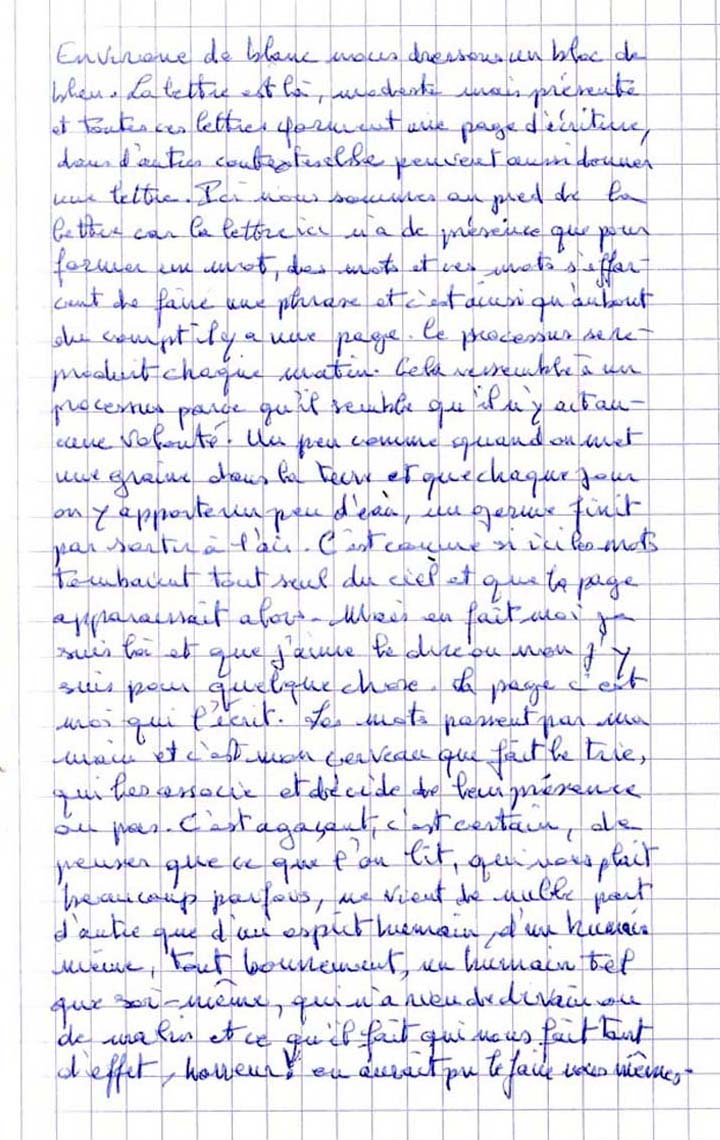 Environné de blanc nous dressons un bloc de
bleu. La lettre est là, modeste mais présente
et toutes ces lettres forment une page d'écriture,
dans d'autres contextes elle peuvent aussi donner
une lettre. Ici nous sommes au pied de la
lettre car la lettre ici n'a de présence que pour
former un mot, des mots et ces mots s'effor-
cent de faire une phrase et c'est ainsi qu'au bout
du compt il y a une page. Ce processus se re-
produit chaque matin. Cela ressemble à un
processus parce qu'il semble qu'il n'y ait au-
cune volonté. Un peu comme quand on met
une graine dans la terre et que chaque jour
on y apporte un peu d'eau, un germe finit
par sortir à l'air. C'est comme si ici les mots
tombaient tout seul du ciel et que la page
apparaissait alors. Mais en fait moi je
suis là et que j'aime le dire ou non j'y
suis pour quelque chose. La page c'est
moi qui l'écrit. Les mots passent par ma
main et c'est mon cerveau qui fait le trie,
qui les associe et décide de leur présence
ou pas. C'est agaçant, c'est certain, de
penser que ce que l'on lit, qui nous plait
beaucoup parfois, ne vient de nulle part
d'autre que d'un esprit humain, d'un humain
même, tout bonnement, un humain tel
que soi-même, qui n'a rien de divin ou
de malin et ce qu'il fait qui nous fait tant
d'effet, horreur! on aurait pu le faire nous mêmes.